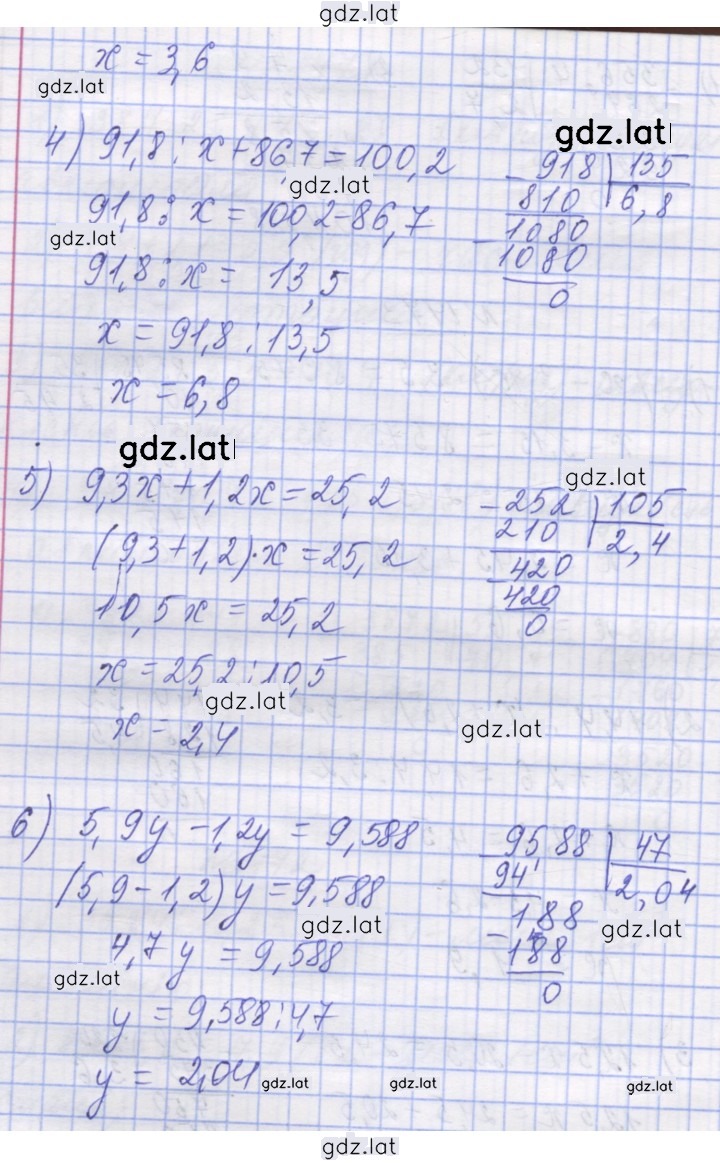 gdz.lat
x = 3,6
gdz.lat
4) 91,8 : x + 86,7 = 100,2
gdz.lat
gdz.lat
91,8 : x = 100,2 - 86,7
gdz.lat
91,8 : x = 13,5
x = 91,8 : 13,5
x = 6,8
- 918 | 135
810 | 6,8
- 1080
1080
0
gdz.lat
gdz.lat
5) 9,3x + 1,2x = 25,2
(9,3 + 1,2) · x = 25,2
10,5x = 25,2
x = 25,2 : 10,5
gdz.lat
x = 2,4
gdz.lat
- 252 | 105
210 | 2,4
- 420
420
0
6) 5,9y - 1,2y = 9,588
(5,9 - 1,2) y = 9,588
gdz.lat
4,7 y = 9,588
gdz.lat
y = 9,588 : 4,7
y = 2,04
- 95,88 | 47
94 | 2,04
188
gdz.lat
- 188
0
gdz.lat
gdz.lat
gdz.lat
gdz.lat